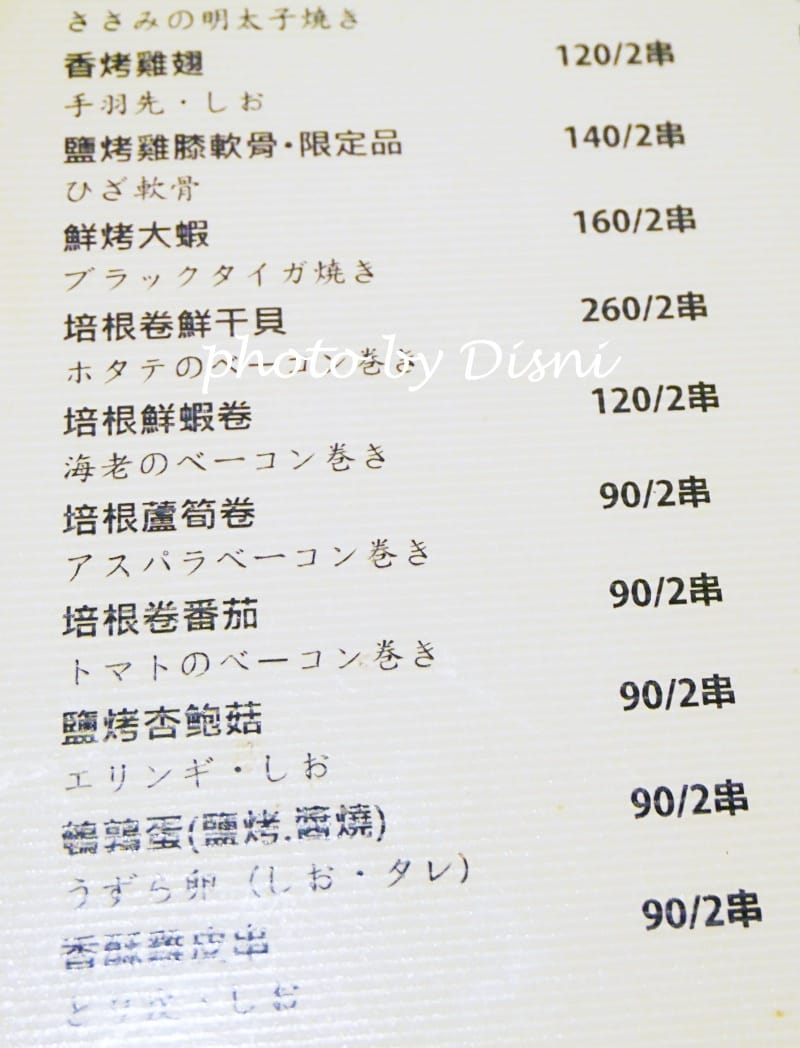 ささみの明太子焼き
香烤雞翅 120/2串
手羽先・しお
鹽烤雞膝軟骨·限定品 140/2串
ひざ軟骨
鮮烤大蝦 160/2串
ブラックタイガ焼き
培根卷鮮干貝 260/2串
ホタテのベーコン巻き
photo by Disni
培根鮮蝦卷 120/2串
海老のベーコン巻き
培根蘆筍卷 90/2串
アスパラベーコン巻き
培根卷番茄 90/2串
トマトのベーコン巻き
鹽烤杏鮑菇 90/2串
エリンギ・しお
鵪鶉蛋(鹽烤.醬燒) 90/2串
うずら卵（しお・タレ）
90/2串
しお